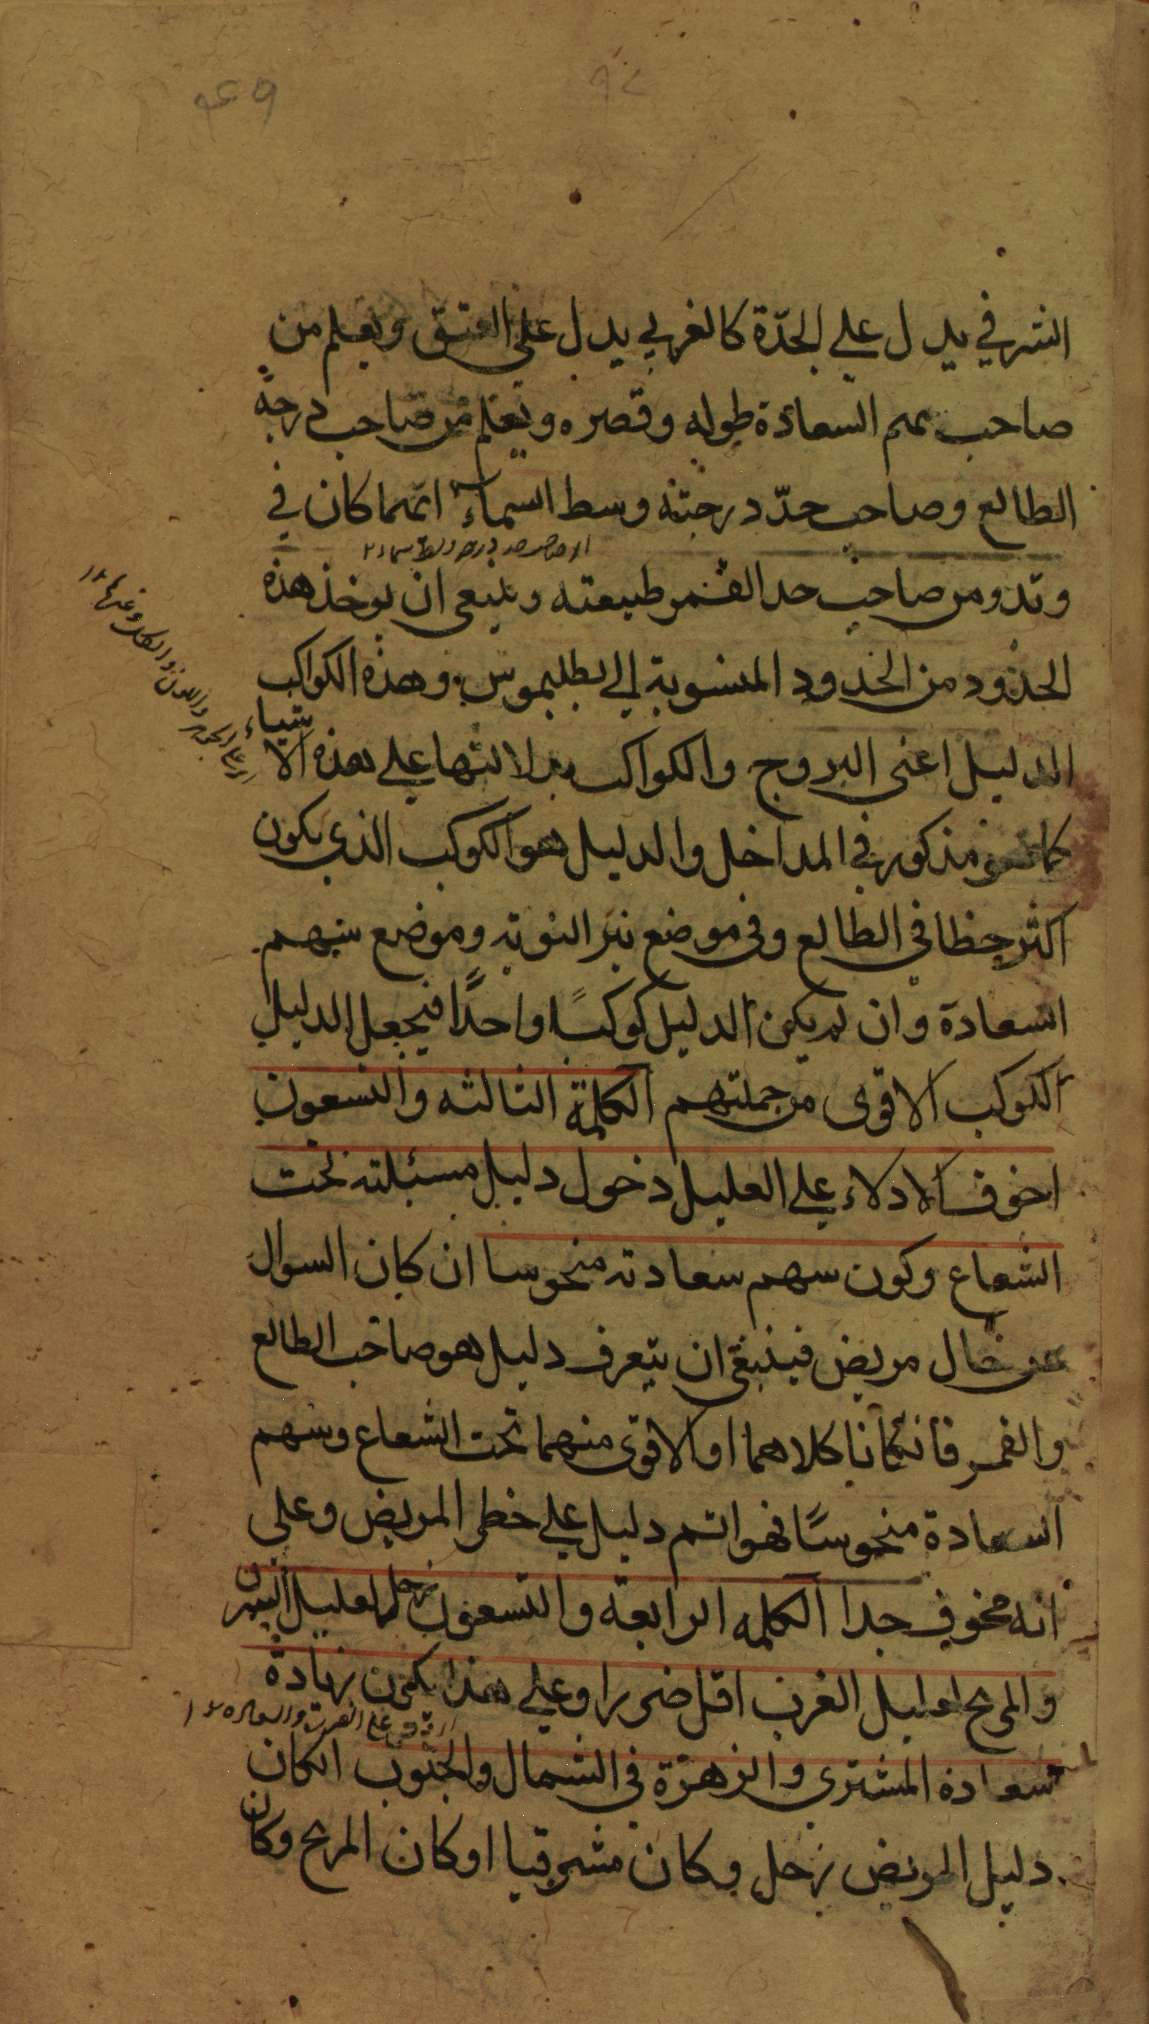 الشرقي يدل على الجدّة كالغربي يدل على العتق ويعلم من
صاحب سهم السعادة طوله وقصره ويعلم من صاحب درجة
الطالع وصاحب حدّ درجته وسط السماء ايهما كان في
وتد ومن صاحب حد القمر طبيعته وينبغي ان يوخذ هذه
الحدود من الحدود المنسوبة الى بطليموس وهذه الكواكب
الدليل اعني البروج والكواكب بدلالتها على هذه الاشياء
كما هو مذكور في المداخل والدليل هو الكوكب الذي يكون
اكثر حظا في الطالع وفي موضع نير النوبة وموضع سهم
السعادة وان لم يكن الدليل كوكبًا واحدًا فيجعل الدليل
الكوكب الاقوى من جملتهم الكلمة الثالثه والتسعون
اخوف الادلاء على العليل دخول دليل مسئلته تحت
الشعاع وكون سهم سعادته منحوسا ان كان السوال
عن حال مريض فينبغي ان يتعرف دليل هو صاحب الطالع
والقمر فان كانا كلاهما او الاقوى منهما تحت الشعاع وسهم
السعادة منحوسًا فهو اتم دليل على خطر المريض وعلى
انه مخوف جدا الكلمه الرابعة والتسعون زحل لعليل الشرق
والمريخ لعليل الغرب اقل ضررا وعلى هذا يكون زيادة
سعادة المشتري والزهرة في الشمال والجنوب ان كان
دليل المريض زحل وكان مشرقيا او كان المريخ وكان